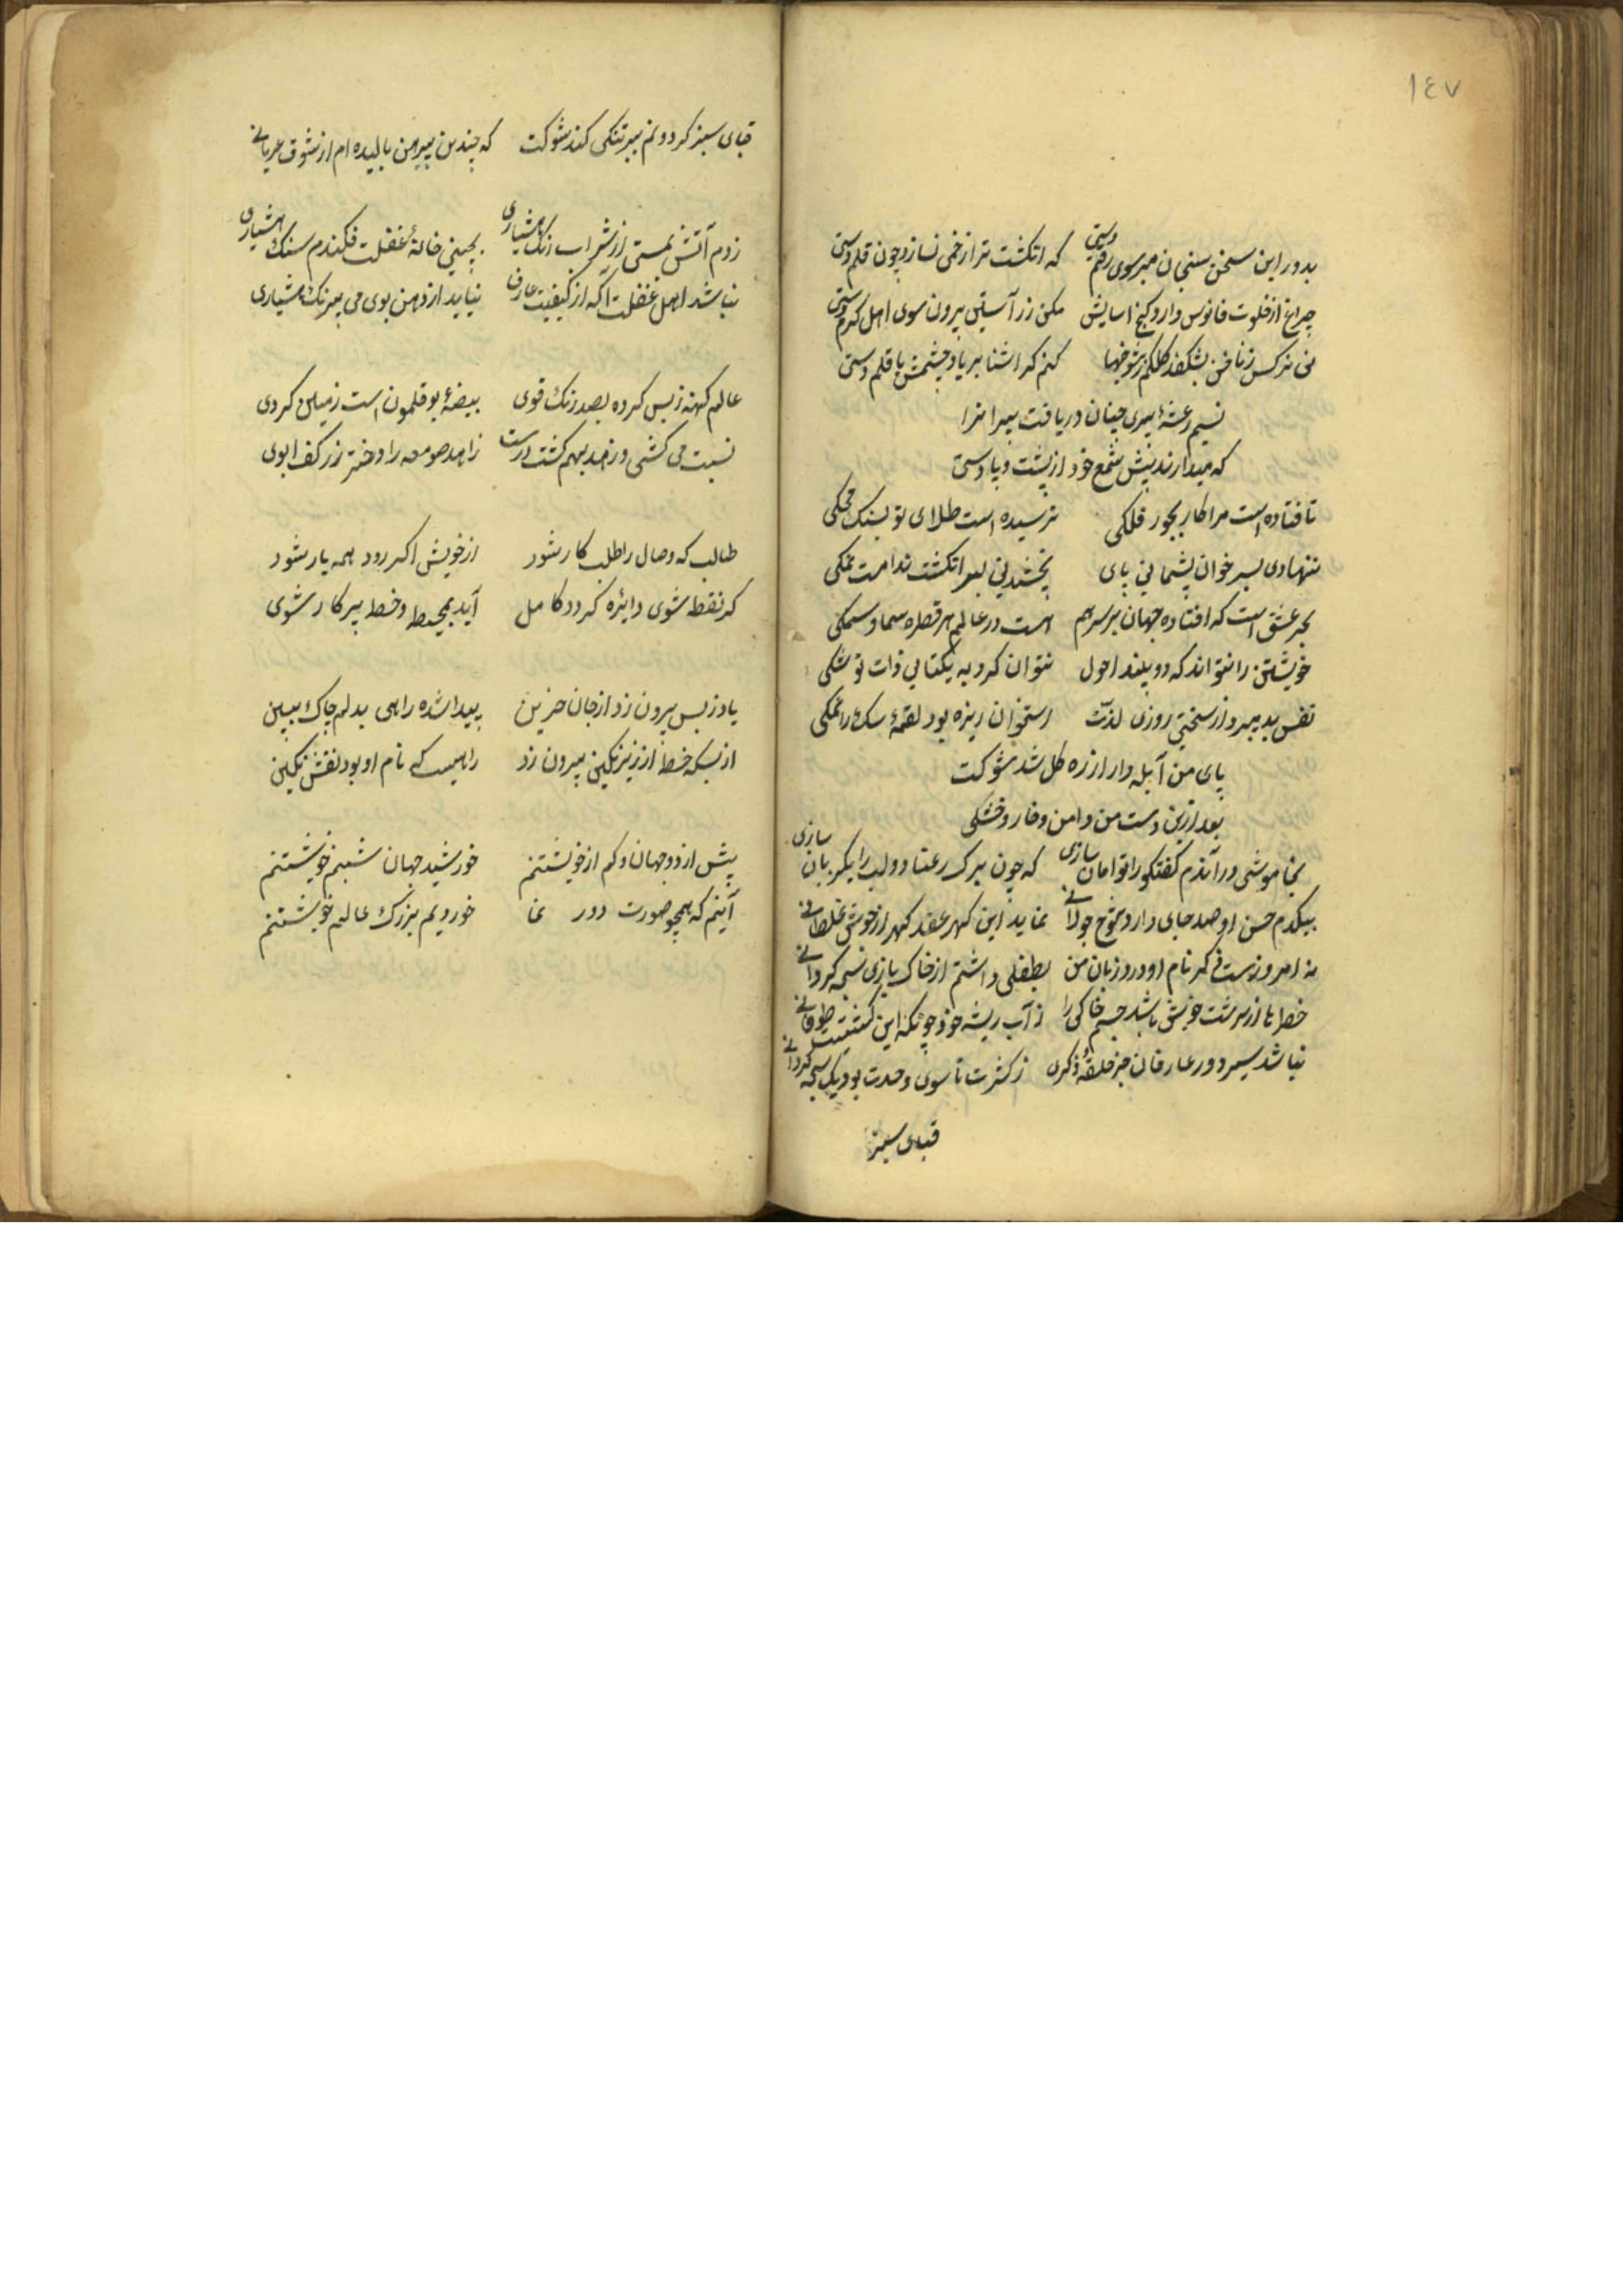 ١٤٧
بدور این سخن سنجان مبر سوی رقم دستی که انکشت ترا زخمی نسازد چون قلم دستی
چراغ از خلوت فانوس دارد کنج اسایش مکن زر آستین بیرون سوی اهل کرم دستی
نی نرکس ز ناخن بشکفد کلکم ز شوخیها کنم کر اشنا بر یاد چشمش با قلم دستی
نسیم رعشهٔ پیری چنان دریافت پیرانرا
که میدارند پیش شمع خود از پشت و پا دستی
تا فتاده است مرا کار بجور فلکی نرسیده است طلای تو بسنک محکی
ننهادی بسر خوان پشیمانی پای نچشیدنی لب انکشت ندامت نمکی
بحر عشق است که افتاده جهان بر سر هم هست در عالم هر قطره سما و سمکی
خویشتن را نتواند که دو بیند احول نتوان کرد به یکتایی ذات تو شکی
نفس بد میبرد از سختی روزی لذت استخوان ریزه بود لقمهٔ سک را نمکی
پای من آبله وار از زه کل شد شوکت
بعد ازین دست من و دامن و خار و خشکی
بخاموشی در آندم کفتکو را توامان سازی که چون برک رعنا دو لب را یکزبان سازی
بیکدم حسن او صد جای دارد بموج جولانی نماید این کهر عقد کهر از خویش غلطانی
نه امروزست ذکر نام او ورد زبان من بطفلی داشتم از خاک بازی سبحه کردانی
خطرها از سرشت خویش باشد جسم خاکی را ز آب ریشه خود چونکه این کشتیست طوفانی
نباشد سیر دور عارفان جز حلقهٔ ذکری ز کثرت تا سوی وحدت بود یک سبحه کردانی
قبای سبز
قبای سبز کردونم ببر تنکی کند شوکت که چندین پیرهن بالیده ام از شوق عریانی
زدم آتش بمستی از شراب رنک هشیاری بچینی خانهٔ غفلت فکندم سنک هشیاری
نباشد اهل غفلت آکه از کیفیت عارف نیاید از دهن بوی می بیرنک هشیاری
عالم کهنه ز بس کرده بصد رنک قوی بیضهٔ بوقلمون است زمین کردی
نسبت می کشی و زهد بهم کشت درست زاهد صومعه را دختر رز کف ابوی
طالب که وصال را طلب کار شود از خویش اکر رود همه یار شود
کر نقطه شوی دایره کردد کامل آید بمحیط و خط پرکار شوی
یاد ز بس بیرون زد از جان حزین پیدا شده راهی بدلم چاک ببین
از بسکه خط از زیر نکین بیرون زد راهیست که نام او بود نقش نکین
پیش از دو جهان و کم از خویشتنم خورشید جهان شبنم خویشتنم
آینم که همچو صورت دور نما خوردیم بزرک عالم خویشتنم